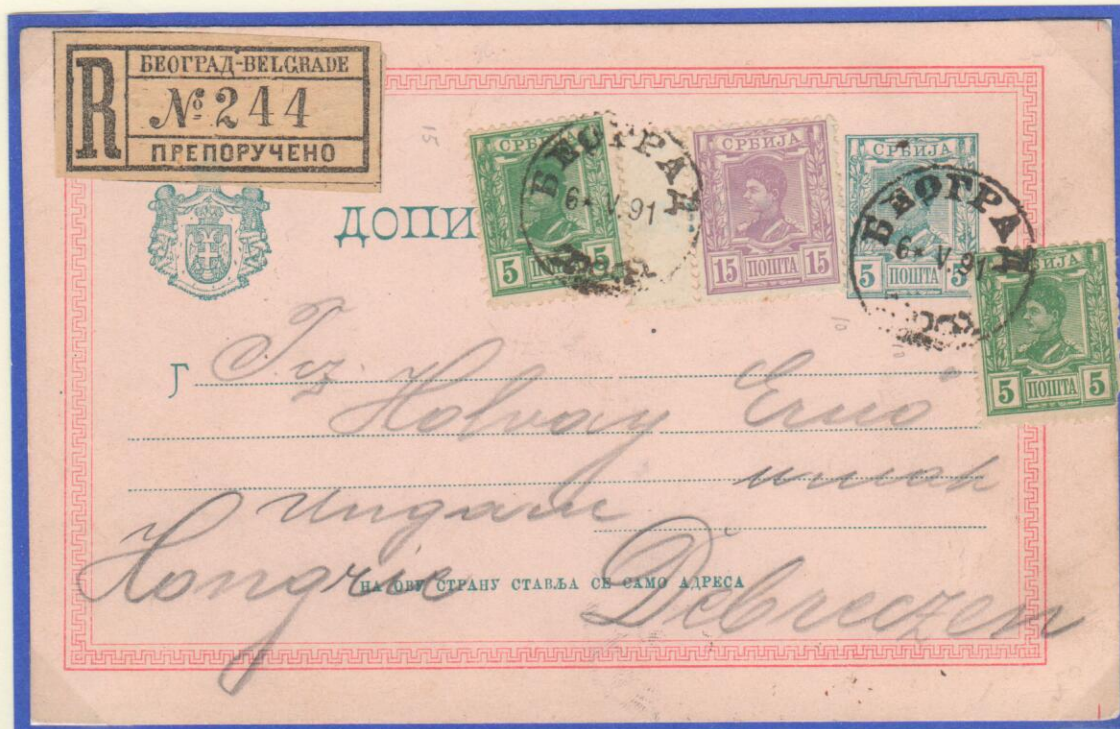 R
БЕОГРАД-BELGRADE
№ 244
ПРЕПОРУЧЕНО
15
ДОПИ
СРБ
5 ПОШТА 5
БЕОГРАД
6 V.91
СРБИЈА
15 ПОШТА 15
СРБИЈА
5 ПОШТА 5
БЕОГРАД
6 V.91
БИЈА
5 ПОШТА 5
Г
Holvay Ernő
urnak
Ungarn
Hongrie
НА ОВУ СТРАНУ СТАВЉА СЕ САМО АДРЕСА
Debreczen